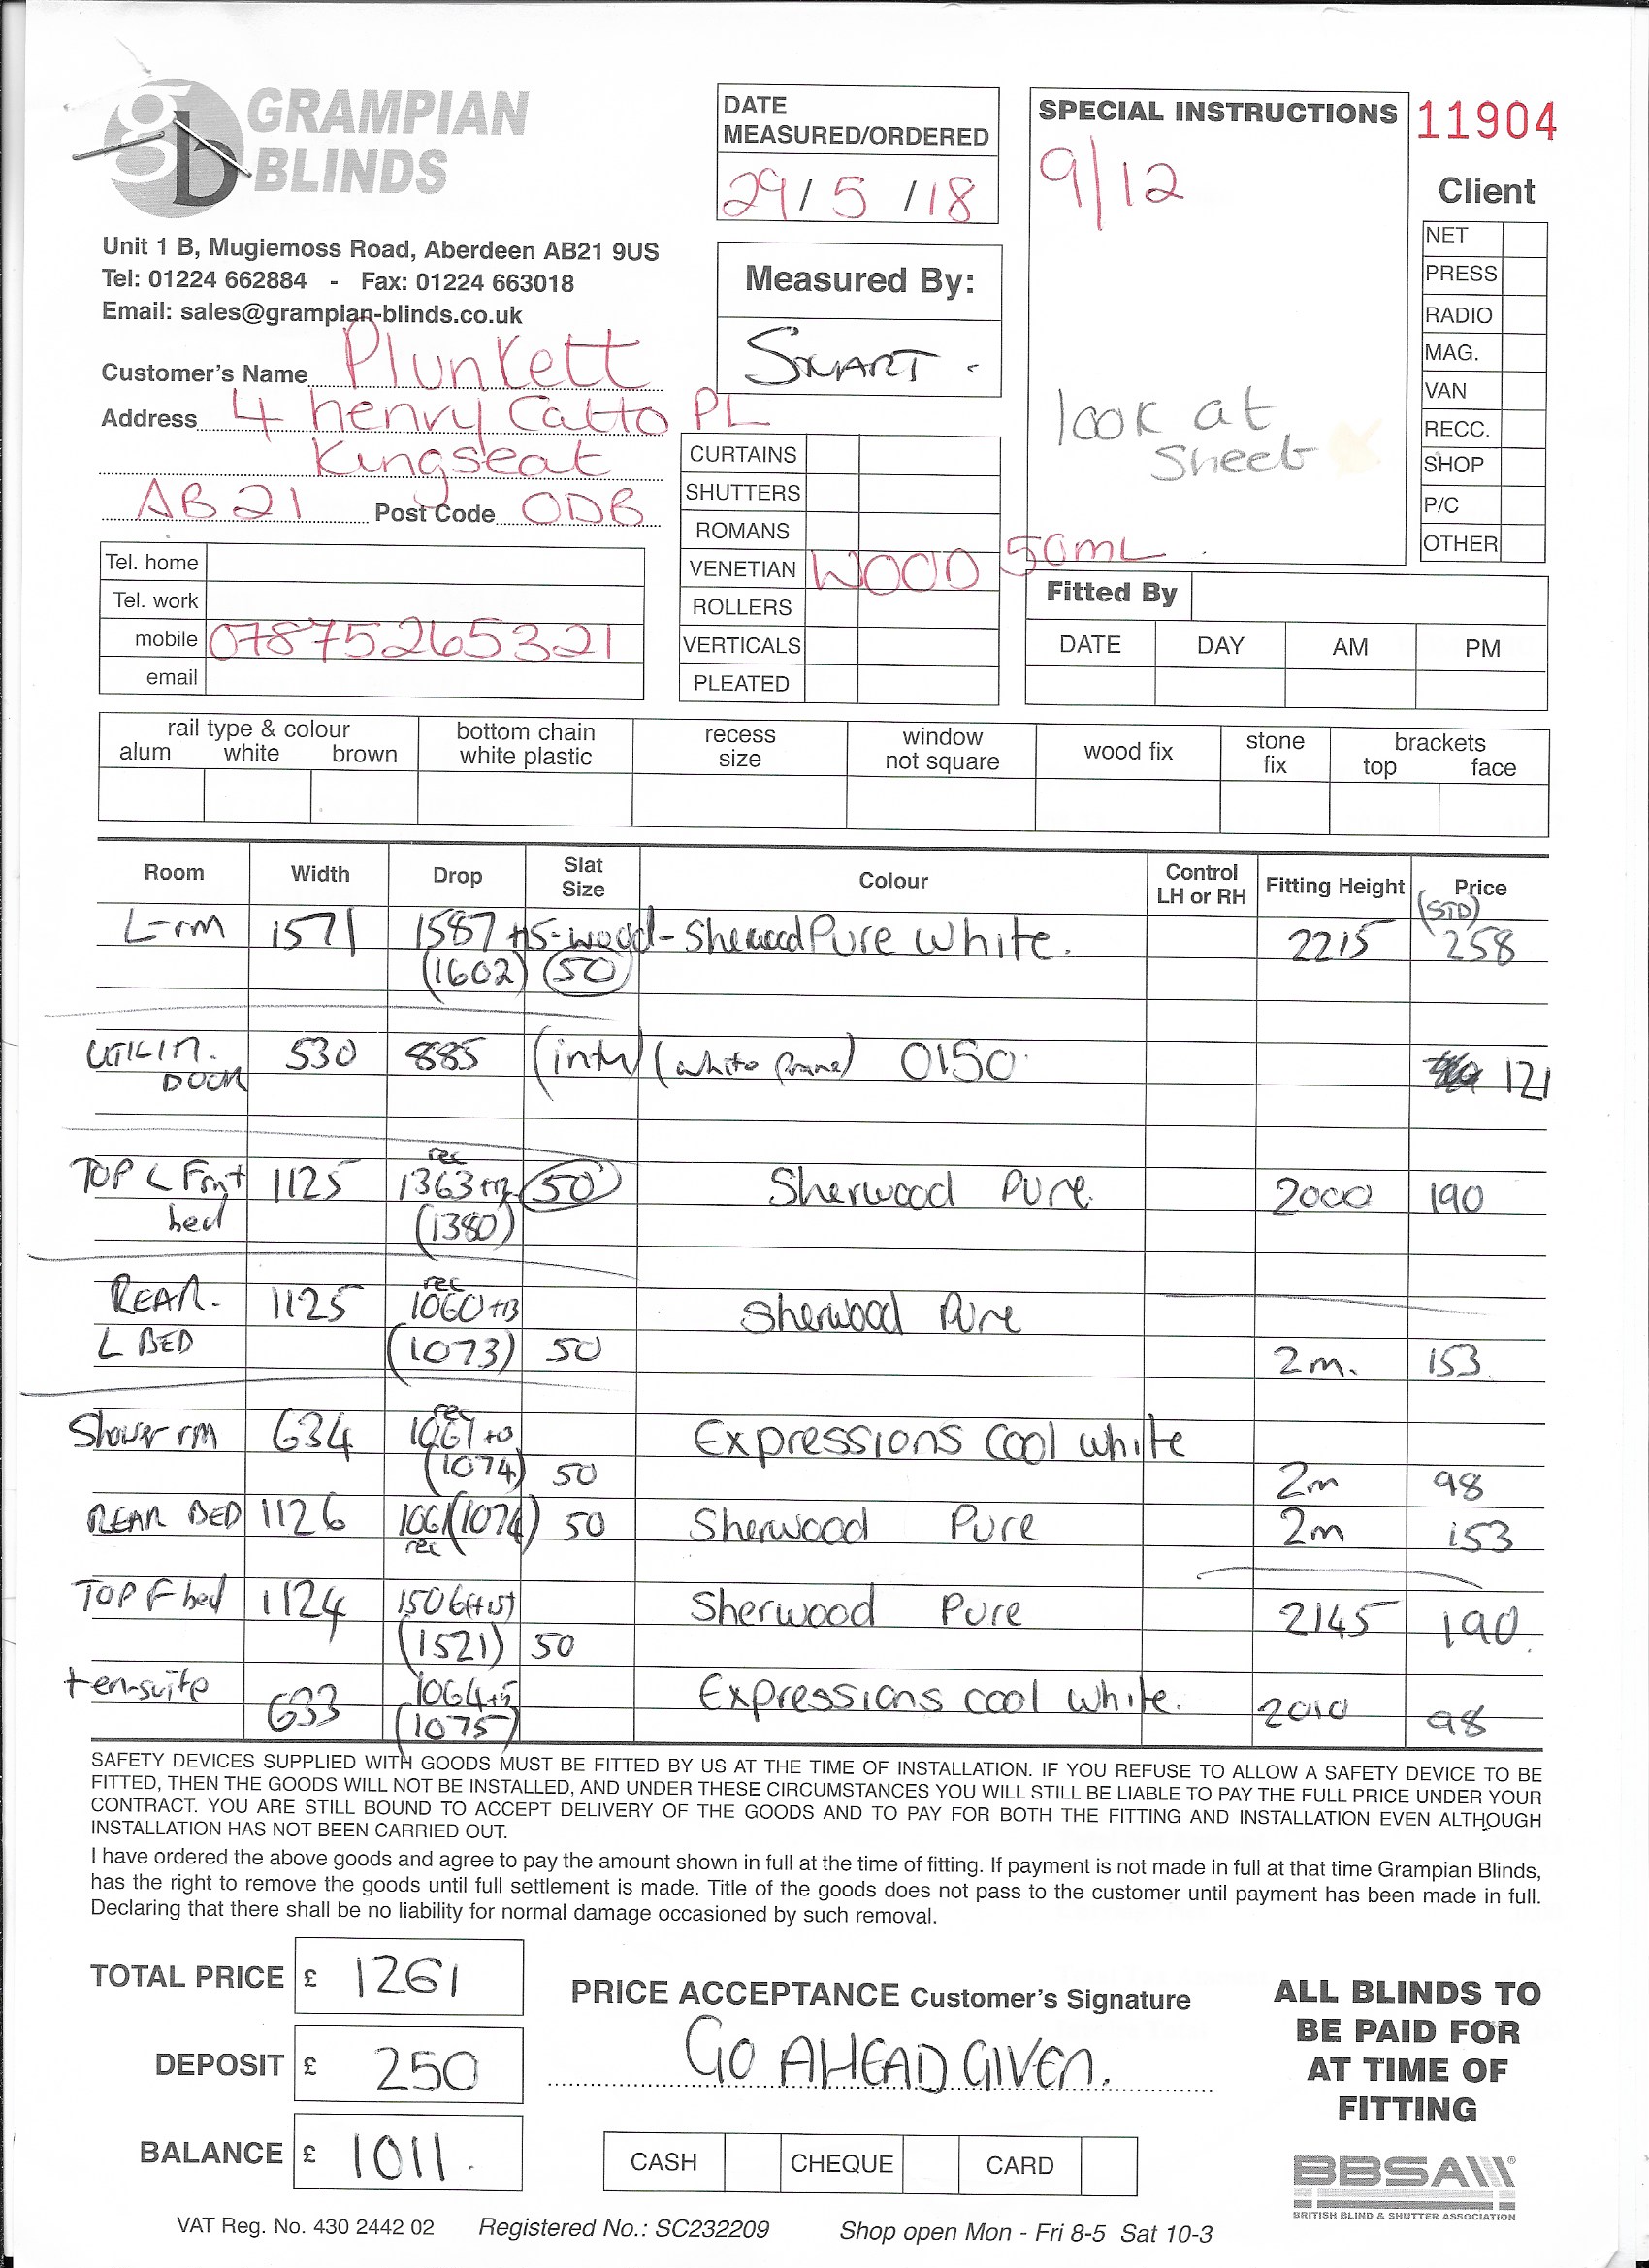 GRAMPIAN
BLINDS
gb
Unit 1 B, Mugiemoss Road, Aberdeen AB21 9US
Tel: 01224 662884 - Fax: 01224 663018
Email: sales@grampian-blinds.co.uk
Customer's Name Plunkett
Address 4 henry Catto PL
Kingseat
AB21 Post Code 0DB
Tel. home
Tel. work
mobile 07875265321
email
DATE
MEASURED/ORDERED
29/5/18
Measured By:
SMART.
CURTAINS
SHUTTERS
ROMANS
VENETIAN WOOD 50mL
ROLLERS
VERTICALS
PLEATED
SPECIAL INSTRUCTIONS
9/12
look at
sheet
11904
Client
NET
PRESS
RADIO
MAG.
VAN
RECC.
SHOP
P/C
OTHER
Fitted By
DATE DAY AM PM
rail type & colour bottom chain recess window wood fix stone brackets
alum white brown white plastic size not square fix top face
Room Width Drop Slat Size Colour Control LH or RH Fitting Height Price
(STD)
L-rm 1571 1587 +15-wood-Sherwood Pure White. 2215 258
(1602) (50)
UTILITY. 530 885 (intu) (white frame) 0150 121
DOOR
rec
TOP L Frnt 1125 1363 +17 (50) Sherwood Pure. 2000 190
bed (1380)
rec
REAR. 1125 1060 +13 Sherwood Pure
L BED (1073) 50 2m. 153.
rec
Shower rm 634 1061 +13 Expressions cool white
(1074) 50 2m 98
REAR BED 1126 1061 (1074) 50 Sherwood Pure 2m 153
rec
TOP F bed 1124 1506(+15) Sherwood Pure 2145 190.
(1521) 50
+en-suite 633 1064 Expressions cool white. 2010 98
(1075)
SAFETY DEVICES SUPPLIED WITH GOODS MUST BE FITTED BY US AT THE TIME OF INSTALLATION. IF YOU REFUSE TO ALLOW A SAFETY DEVICE TO BE
FITTED, THEN THE GOODS WILL NOT BE INSTALLED, AND UNDER THESE CIRCUMSTANCES YOU WILL STILL BE LIABLE TO PAY THE FULL PRICE UNDER YOUR
CONTRACT. YOU ARE STILL BOUND TO ACCEPT DELIVERY OF THE GOODS AND TO PAY FOR BOTH THE FITTING AND INSTALLATION EVEN ALTHOUGH
INSTALLATION HAS NOT BEEN CARRIED OUT.
I have ordered the above goods and agree to pay the amount shown in full at the time of fitting. If payment is not made in full at that time Grampian Blinds,
has the right to remove the goods until full settlement is made. Title of the goods does not pass to the customer until payment has been made in full.
Declaring that there shall be no liability for normal damage occasioned by such removal.
TOTAL PRICE £ 1261
DEPOSIT £ 250
BALANCE £ 1011.
PRICE ACCEPTANCE Customer's Signature
GO AHEAD GIVEN.
CASH CHEQUE CARD
ALL BLINDS TO
BE PAID FOR
AT TIME OF
FITTING
BBSA
BRITISH BLIND & SHUTTER ASSOCIATION
VAT Reg. No. 430 2442 02 Registered No.: SC232209 Shop open Mon - Fri 8-5 Sat 10-3